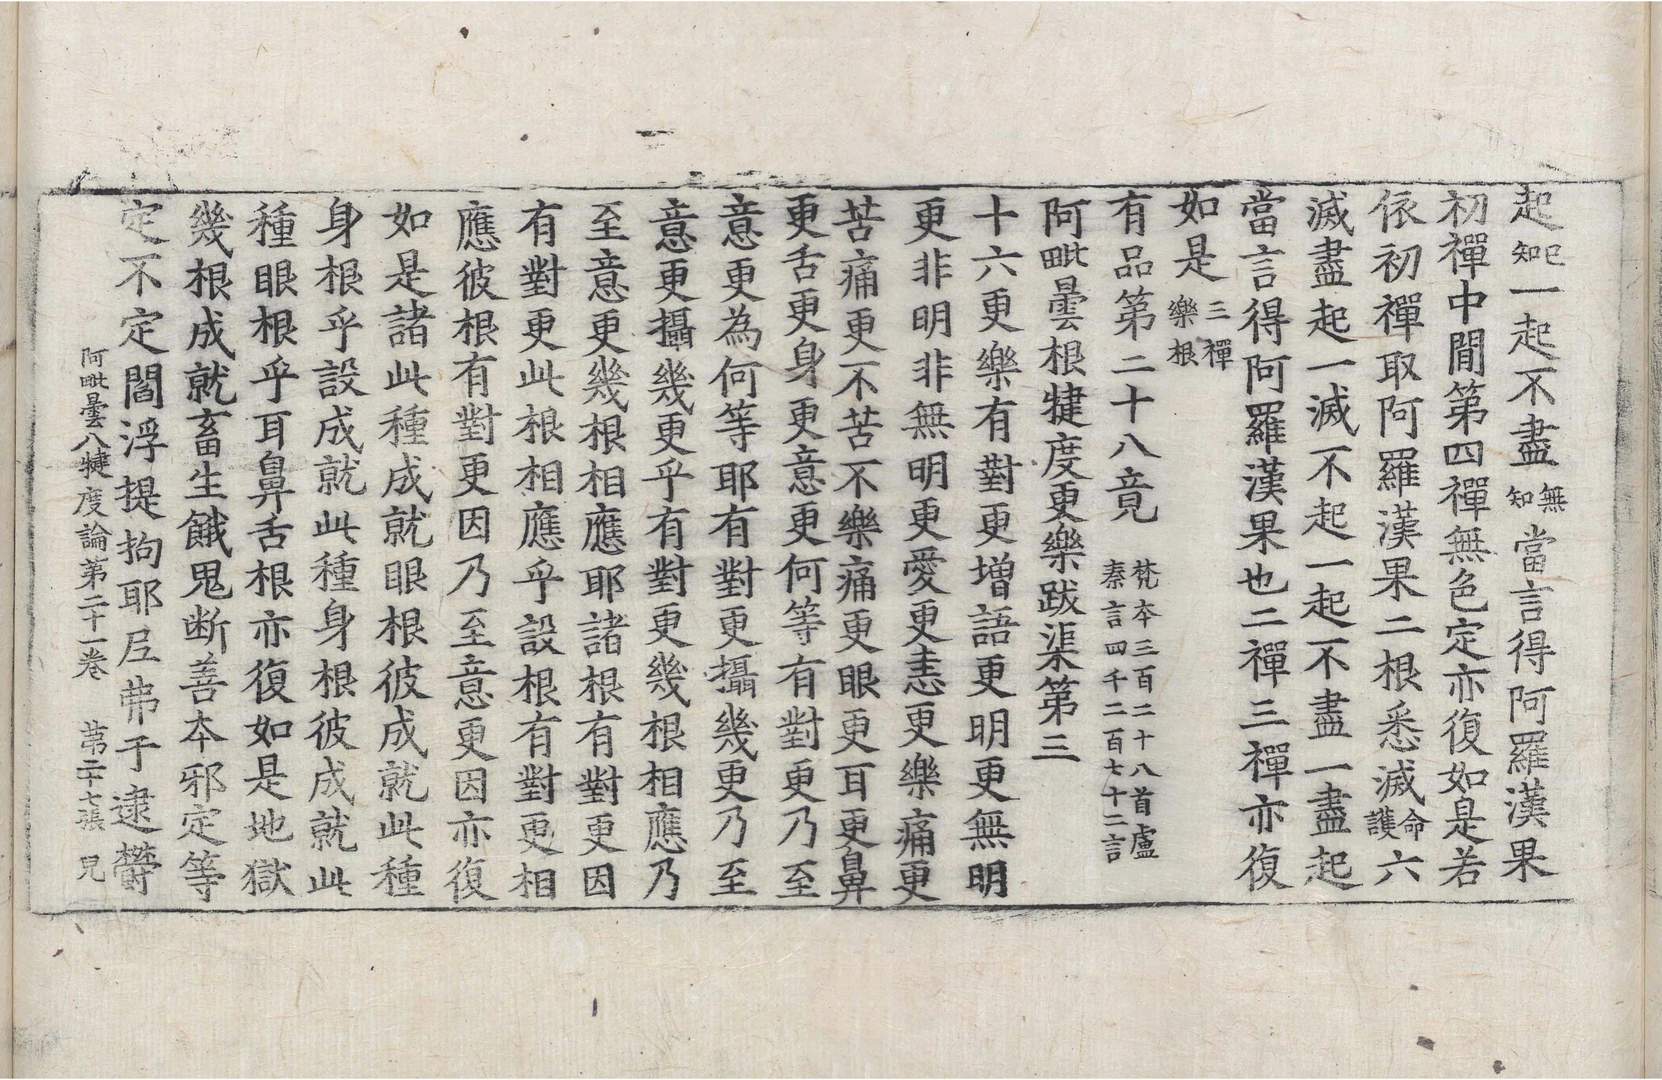 起已知一起不盡無知當言得阿羅漢果
初禪中間第四禪無色定亦復如是若
依初禪取阿羅漢果二根悉滅命護六
滅盡起一滅不起一起不盡一盡起
當言得阿羅漢果也二禪三禪亦復
如是三禪樂根
有品第二十八竟梵本三百二十八首盧秦言四千二百七十二言
阿毗曇根犍度更樂跋渠第三
十六更樂有對更增語更明更無明
更非明非無明更愛更恚更樂痛更
苦痛更不苦不樂痛更眼更耳更鼻
更舌更身更意更何等有對更乃至
意更為何等耶有對更攝幾更乃至
意更攝幾更乎有對更幾根相應乃
至意更幾根相應耶諸根有對更因
有對更此根相應乎設根有對更相
應彼根有對更因乃至意更因亦復
如是諸此種成就眼根彼成就此種
身根乎設成就此種身根彼成就此
種眼根乎耳鼻舌根亦復如是地獄
幾根成就畜生餓鬼断善本邪定等
定不定閻浮提拘耶尼弗于逮欝
阿毗曇八犍度論第二十一卷 第二十七張 兄